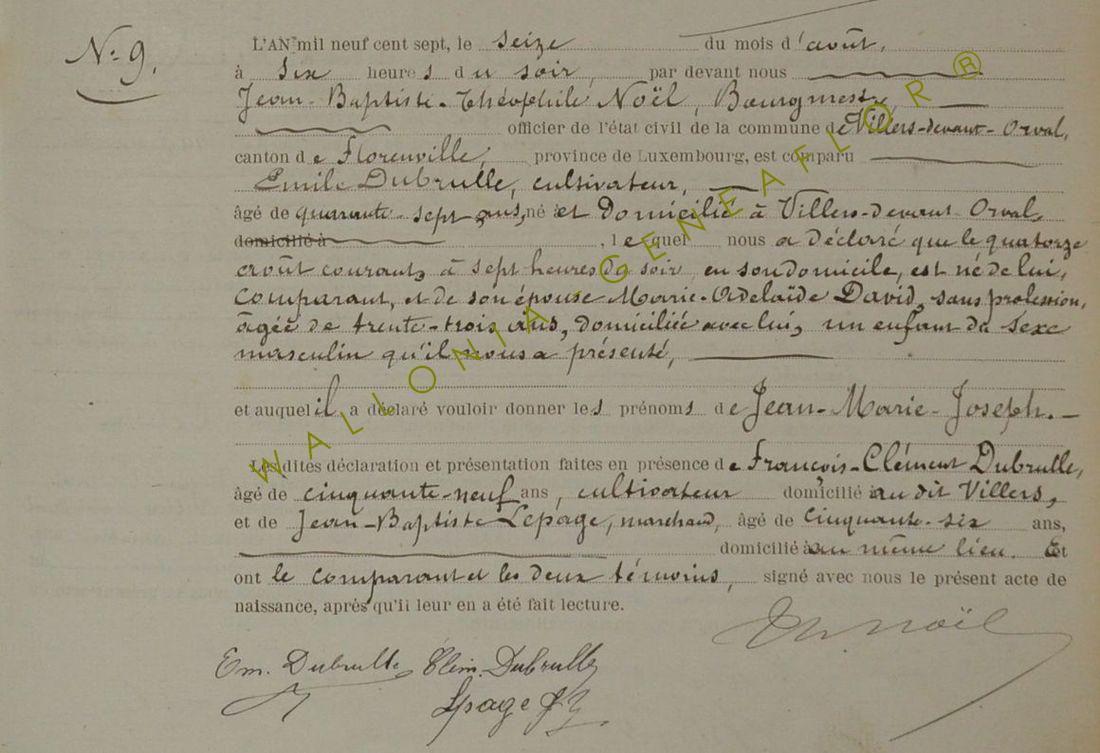 N° 9.
L'AN mil neuf cent sept, le seize du mois d'août,
à six heures du soir, par devant nous
Jean-Baptiste-Théophile Noël, Bourgmestre,
officier de l'état civil de la commune de Villers-devant-Orval,
canton de Florenville, province de Luxembourg, est comparu
Emile Dubrulle, cultivateur,
âgé de quarante-sept ans, né et domicilié à Villers-devant-Orval,
domicilié à , lequel nous a déclaré que le quatorze
août courant, à sept heures du soir, en son domicile, est né de lui,
comparant, et de son épouse Marie-Adelaïde David, sans profession,
âgée de trente-trois ans, domiciliée avec lui, un enfant du sexe
masculin qu'il nous a présenté,
et auquel il a déclaré vouloir donner les prénoms de Jean-Marie-Joseph.
Les dites déclaration et présentation faites en présence de François-Clément Dubrulle,
âgé de cinquante-neuf ans, cultivateur domicilié au dit Villers,
et de Jean-Baptiste Lepage, marchand, âgé de cinquante-six ans,
domicilié à au même lieu. Et
ont le comparant et les deux témoins, signé avec nous le présent acte de
naissance, après qu'il leur en a été fait lecture.
Th Noël
Em. Dubrulle Clém. Dubrulle
Lpage J B
WALLONIA GENEAFLOR ®